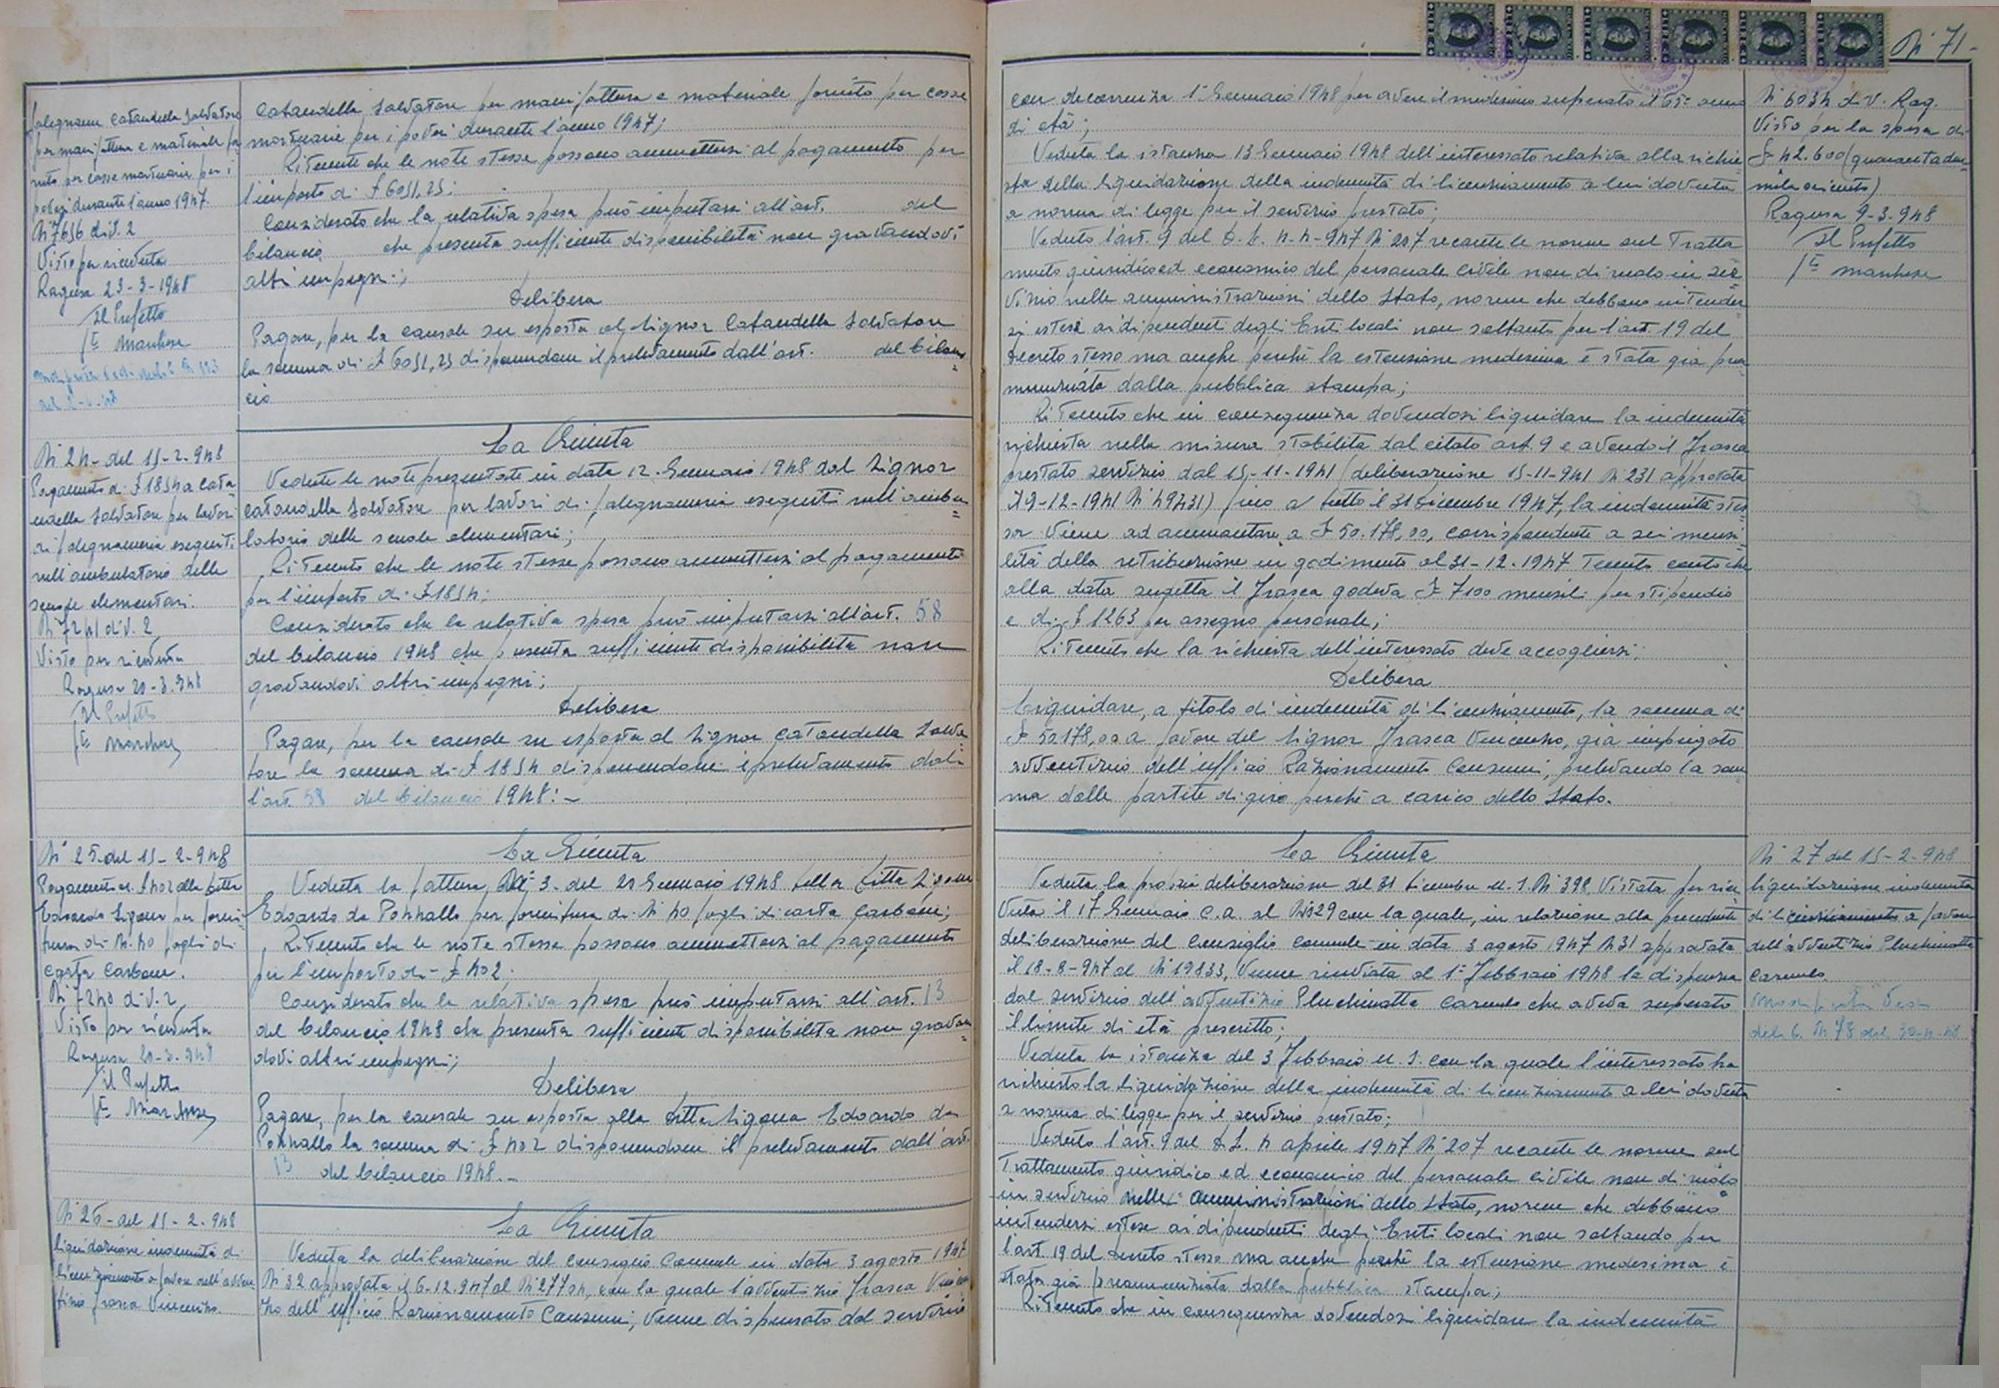 falegname Catandella Salvatore
per manifattura e materiale for
nito per casse mortuarie per i
poveri durante l'anno 1947.
N° 7656 div. 2
Visto per ricevuta
Ragusa 23-3-1948
Il Prefetto
Fto Marchese
del
Catandella Salvatore per manifattura e materiale fornito per casse
mortuarie per i poveri durante l'anno 1947;
Ritenuto che le note stesse possono ammettersi al pagamento per
l'importo di £ 6051,25;
Considerato che la relativa spesa può imputarsi all'art. del
bilancio che presenta sufficiente disponibilità non gravandovi
altri impegni;
Delibera
Pagare, per la causale su esposta al Signor Catandella Salvatore
la somma di £ 6051,25 disponendone il prelevamento dall'art. del bilan=
cio
N° 24 del 15-2-948
Pagamento di £ 1854 a Cata
ndella Salvatore per lavori
di falegnameria eseguiti
nell'ambulatorio delle
scuole elementari.
N° 7241 div. 2
Visto per ricevuta
Ragusa 20-3-948
Il Prefetto
Fto Marchese
La Giunta
Vedute le note presentate in data 12 Gennaio 1948 dal Signor
Catandella Salvatore per lavori di falegnameria eseguiti nell'ambu=
latorio delle scuole elementari;
Ritenuto che le note stesse possono ammettersi al pagamento
per l'importo di £ 1854;
Considerato che la relativa spesa può imputarsi all'art. 58
del bilancio 1948 che presenta sufficiente disponibilità non
gravandovi altri impegni;
Delibera
Pagare, per la causale su esposta al Signor Catandella Salva
tore la somma di £ 1854 disponendone il prelevamento dal=
l'art. 58 del bilancio 1948.-
N° 25 del 15-2-948
Pagamento di £ 402 alla Ditta
Edoardo Ligona per forni
tura di N. 40 fogli di
carta carbone.
N° 7240 div. 2
Visto per ricevuta
Ragusa 20-3-948
Il Prefetto
Fto Marchese
La Giunta
Veduta la fattura N° 3 del 28 Gennaio 1948 della Ditta Ligona
Edoardo da Pozzallo per fornitura di N. 40 fogli di carta carbone;
Ritenuto che le note stesse possono ammettersi al pagamento
per l'importo di £ 402;
Considerato che la relativa spesa può imputarsi all'art. 13
del bilancio 1948 che presenta sufficiente disponibilità non gravan=
dovi altri impegni;
Delibera
Pagare, per la causale su esposta alla Ditta Ligona Edoardo da
Pozzallo la somma di £ 402 disponendone il prelevamento dall'art.
13 del bilancio 1948.-
N° 26 del 15-2-948
Liquidazione indennità di
licenziamento a favore dell'avven
tizio Frasca Vincenzo.
La Giunta
Veduta la deliberazione del Consiglio Comunale in data 3 agosto 1947
N° 32 approvata il 6-12-947 al N° con la quale l'avventizio Frasca Vincen
zo dell'Ufficio Razionamento Consumi, venne dispensato dal servizio
N° 71-
con decorrenza 1° Gennaio 1948 per avere il medesimo superato il 65° anno
di età;
Veduta la istanza 13 Gennaio 1948 dell'interessato relativa alla richie
sta della liquidazione della indennità di licenziamento a lui dovuta
a norma di legge per il servizio prestato;
Veduto l'art. 9 del D.L. 4-4-947 N° 207 recante le norme sul Tratta
mento giuridico ed economico del personale civile non di ruolo in ser
vizio nelle amministrazioni dello Stato, norme che debbono intender
si estese ai dipendenti degli Enti locali non soltanto per l'art. 19 del
decreto stesso ma anche perchè la estensione medesima è stata già prea
nnunziata dalla pubblica stampa;
Ritenuto che in conseguenza dovendosi liquidare la indennità
richiesta nella misura stabilita dal citato art. 9 e avendo il Frasca
prestato servizio dal 15-11-1941 (deliberazione 15-11-941 N° 231 approvata
il 9-12-1941 N° 49231) fino a tutto il 31 Dicembre 1947, la indennità stes=
sa viene ad ammontare a £ 50.178,00, corrispondente a sei mensi=
lità della retribuzione in godimento al 31-12-1947 tenuto conto che
alla data suddetta il Frasca godeva £ 7100 mensili per stipendio
e di £ 1263 per assegno personale;
Ritenuto che la richiesta dell'interessato deve accogliersi;
Delibera
Liquidare, a titolo di indennità di licenziamento, la somma di
£ 50178,00 a favore del Signor Frasca Vincenzo, già impiegato
avventizio dell'ufficio Razionamento Consumi, prelevando la som
ma dalle partite di giro perchè a carico dello Stato.
N° 6034 div. Rag.
Visto per la spesa di
£ 42.600 (quarantadue
mila seicento)
Ragusa 9-3-948
Il Prefetto
Fto Marchese
La Giunta
Veduta la propria deliberazione del 31 Dicembre u.s. N° 398 vistata per rice
vuta il 17 Gennaio c.a. al N° con la quale, in relazione alla precedente
deliberazione del Consiglio Comunale in data 3 agosto 1947 N° 31 approvata
il 18-8-947 al N° 19833, venne rinviata al 1° Febbraio 1948 la dispensa
dal servizio dell'avventizio Pluchinotta Carmelo che aveva superato
il limite di età prescritto;
Veduta la istanza del 3 Febbraio u.s. con la quale l'interessato ha
richiesto la liquidazione della indennità di licenziamento a lui dovuta
a norma di legge per il servizio prestato;
Veduto l'art. 9 del D.L. 4 aprile 1947 N° 207 recante le norme sul
Trattamento giuridico ed economico del personale civile non di ruolo
in servizio nelle amministrazioni dello Stato, norme che debbono
intendersi estese ai dipendenti degli Enti locali non soltanto per
l'art. 19 del decreto stesso ma anche perchè la estensione medesima è
stata già preannunziata dalla pubblica stampa;
Ritenuto che in conseguenza dovendosi liquidare la indennità
N° 27 del 15-2-948
Liquidazione indennità
di licenziamento a favore
dell'avventizio Pluchinotta
Carmelo.
Modificata Ved.
delib. N° 78 del 30-4-48